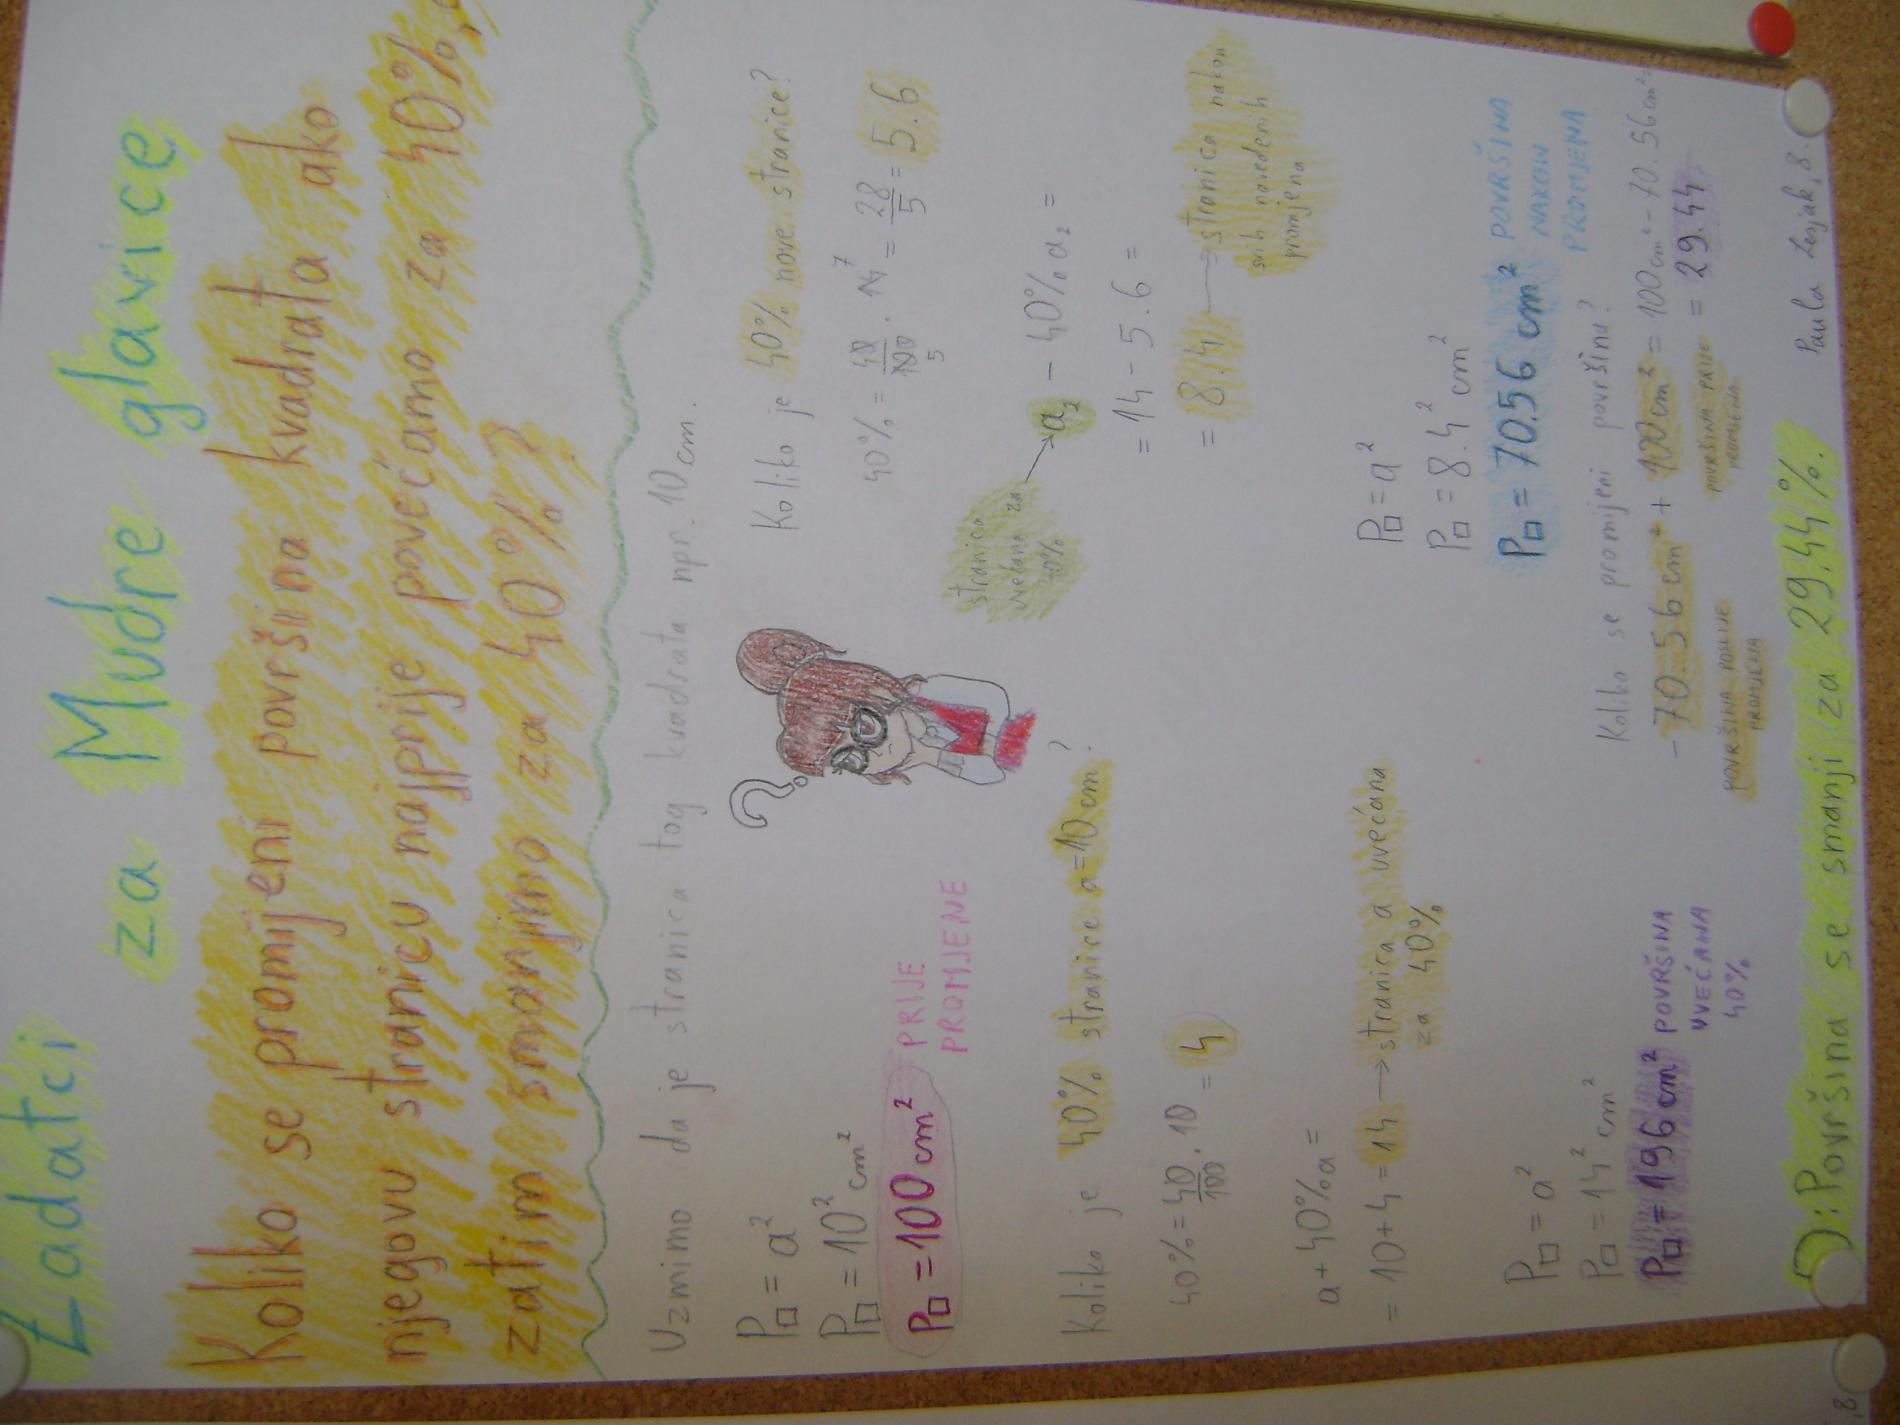 Zadatci
za Mudre glavice
Koliko se promijeni površina kvadrata ako
njegovu stranicu najprije povećamo za 40%, a
zatim smanjimo za 40%?
Uzmimo da je stranica tog kvadrata npr. 10 cm.
P□ = a²
P□ = 10² cm²
P□ = 100 cm² PRIJE
PROMJENE
Koliko je 40% stranice a=10cm?
40% = 40/100 · 10 = 4
a + 40% a =
= 10 + 4 = 14 → stranica a uvećana
za 40%
P□ = a²
P□ = 14² cm²
P□ = 196 cm² POVRŠINA
UVEĆANA
40%
Koliko je 40% nove stranice?
40% = 40/100 · 14 = 28/5 = 5.6
5
7
stranica
uvećana za
40%
→ a₂ - 40% a₂ =
= 14 - 5.6 =
= 8.4 → stranica nakon
svih navedenih
promjena
P□ = a²
P□ = 8.4² cm²
P□ = 70.56 cm² POVRŠINA
NAKON
PROMJENA
Koliko se promijeni površina?
- 70.56 cm² + 100 cm² = 100 cm² - 70.56 cm² =
= 29.44
POVRŠINA POSLIJE
PROMJENA
POVRŠINA PRIJE
PROMJENA
O: Površina se smanji za 29.44%.
Paula 8.
8